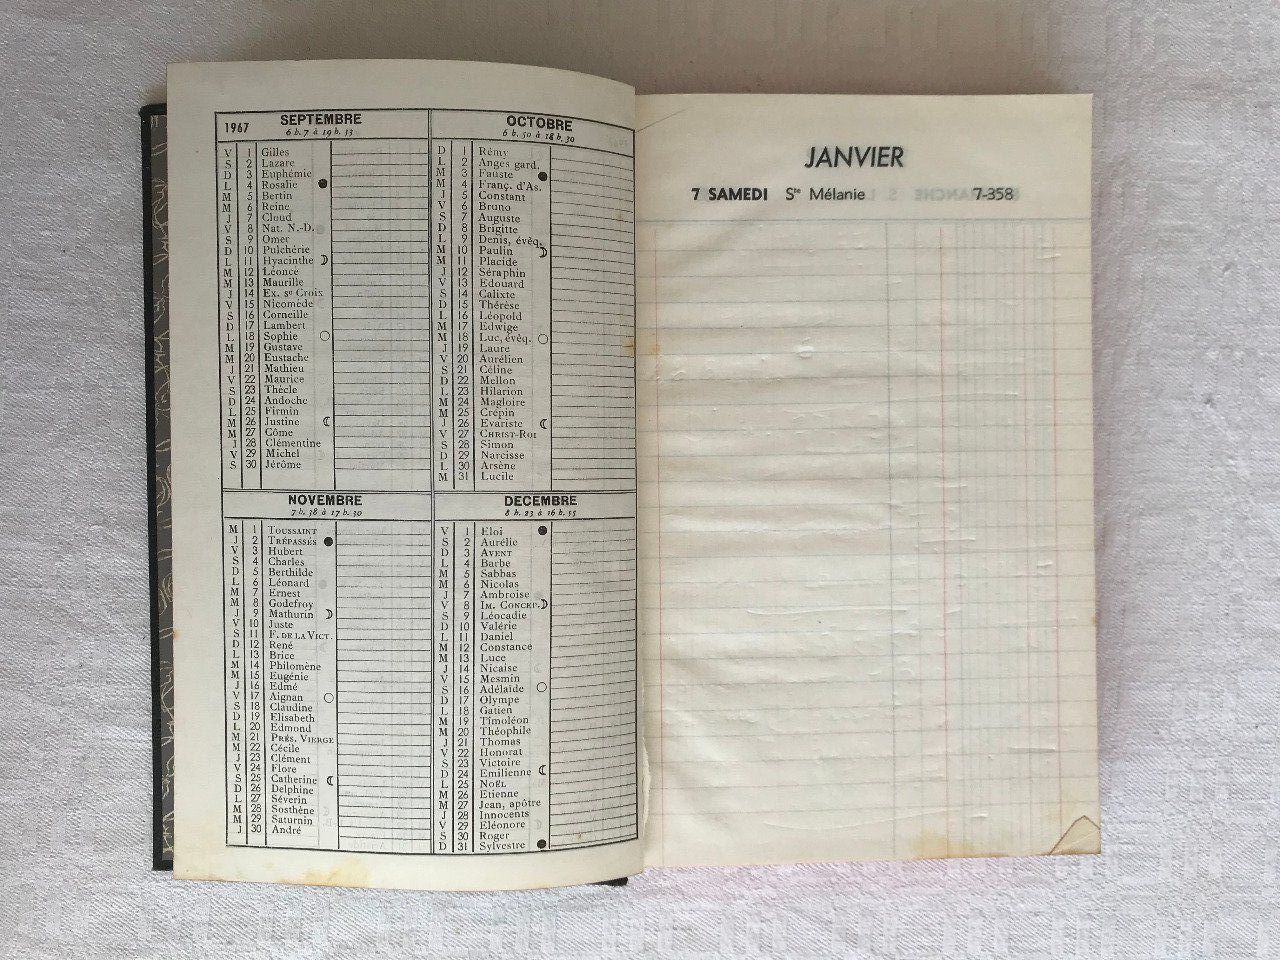 1967 SEPTEMBRE
6 h. 7 à 19 h. 13
V 1 Gilles
S 2 Lazare
D 3 Euphémie
L 4 Rosalie
M 5 Bertin
M 6 Reine
J 7 Cloud
V 8 Nat. N.-D.
S 9 Omer
D 10 Pulchérie
L 11 Hyacinthe
M 12 Léonce
M 13 Maurille
J 14 Ex. ste Croix
V 15 Nicomède
S 16 Corneille
D 17 Lambert
L 18 Sophie
M 19 Gustave
M 20 Eustache
J 21 Mathieu
V 22 Maurice
S 23 Thècle
D 24 Andoche
L 25 Firmin
M 26 Justine
M 27 Côme
J 28 Clémentine
V 29 Michel
S 30 Jérôme
OCTOBRE
6 h. 50 à 18 h. 30
D 1 Rémy
L 2 Anges gard.
M 3 Fauste
M 4 Franç. d'As.
J 5 Constant
V 6 Bruno
S 7 Auguste
D 8 Brigitte
L 9 Denis, évêq.
M 10 Paulin
M 11 Placide
J 12 Séraphin
V 13 Edouard
S 14 Calixte
D 15 Thérèse
L 16 Léopold
M 17 Edwige
M 18 Luc, évêq.
J 19 Laure
V 20 Aurélien
S 21 Céline
D 22 Mellon
L 23 Hilarion
M 24 Magloire
M 25 Crépin
J 26 Evariste
V 27 CHRIST-ROI
S 28 Simon
D 29 Narcisse
L 30 Arsène
M 31 Lucile
NOVEMBRE
7 h. 38 à 17 h. 30
M 1 TOUSSAINT
J 2 TRÉPASSÉS
V 3 Hubert
S 4 Charles
D 5 Berthilde
L 6 Léonard
M 7 Ernest
M 8 Godefroy
J 9 Mathurin
V 10 Juste
S 11 F. DE LA VICT.
D 12 René
L 13 Brice
M 14 Philomène
M 15 Eugénie
J 16 Edmé
V 17 Aignan
S 18 Claudine
D 19 Elisabeth
L 20 Edmond
M 21 PRÉS. VIERGE
M 22 Cécile
J 23 Clément
V 24 Flore
S 25 Catherine
D 26 Delphine
L 27 Séverin
M 28 Sosthène
M 29 Saturnin
J 30 André
DECEMBRE
8 h. 23 à 16 h. 55
V 1 Eloi
S 2 Aurélie
D 3 AVENT
L 4 Barbe
M 5 Sabbas
M 6 Nicolas
J 7 Ambroise
V 8 IM. CONCEP.
S 9 Léocadie
D 10 Valérie
L 11 Daniel
M 12 Constance
M 13 Luce
J 14 Nicaise
V 15 Mesmin
S 16 Adélaïde
D 17 Olympe
L 18 Gatien
M 19 Timoléon
M 20 Théophile
J 21 Thomas
V 22 Honorat
S 23 Victoire
D 24 Emilienne
L 25 NOËL
M 26 Etienne
M 27 Jean, apôtre
J 28 Innocents
V 29 Eléonore
S 30 Roger
D 31 Sylvestre
JANVIER
7 SAMEDI Ste Mélanie 7-358